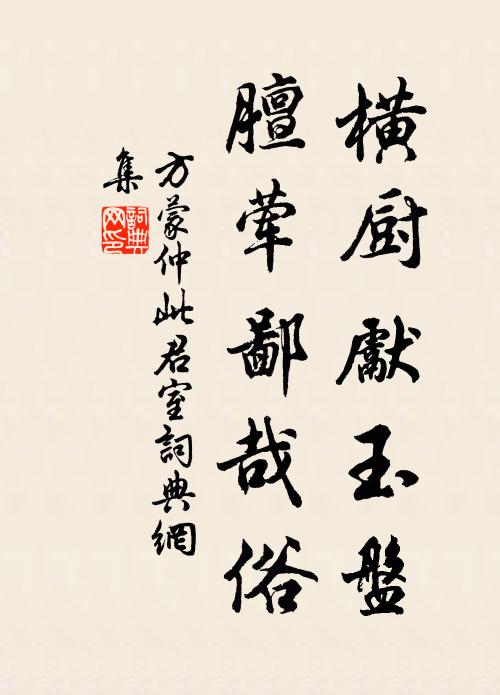 橫厨獻玉盤
膻荤鄙哉俗
方蒙仲此君室詞典網
集
詞典
网印